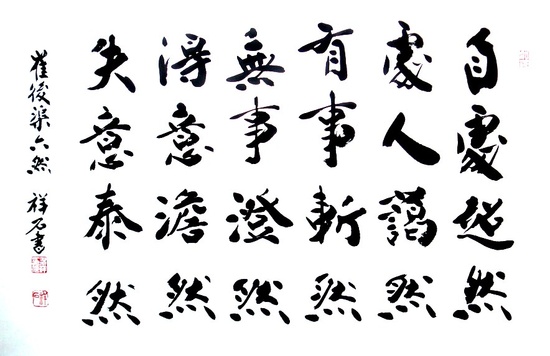 自處超然
處人藹然
有事斬然
無事澄然
得意澹然
失意泰然
崔後渠六然 祥石書